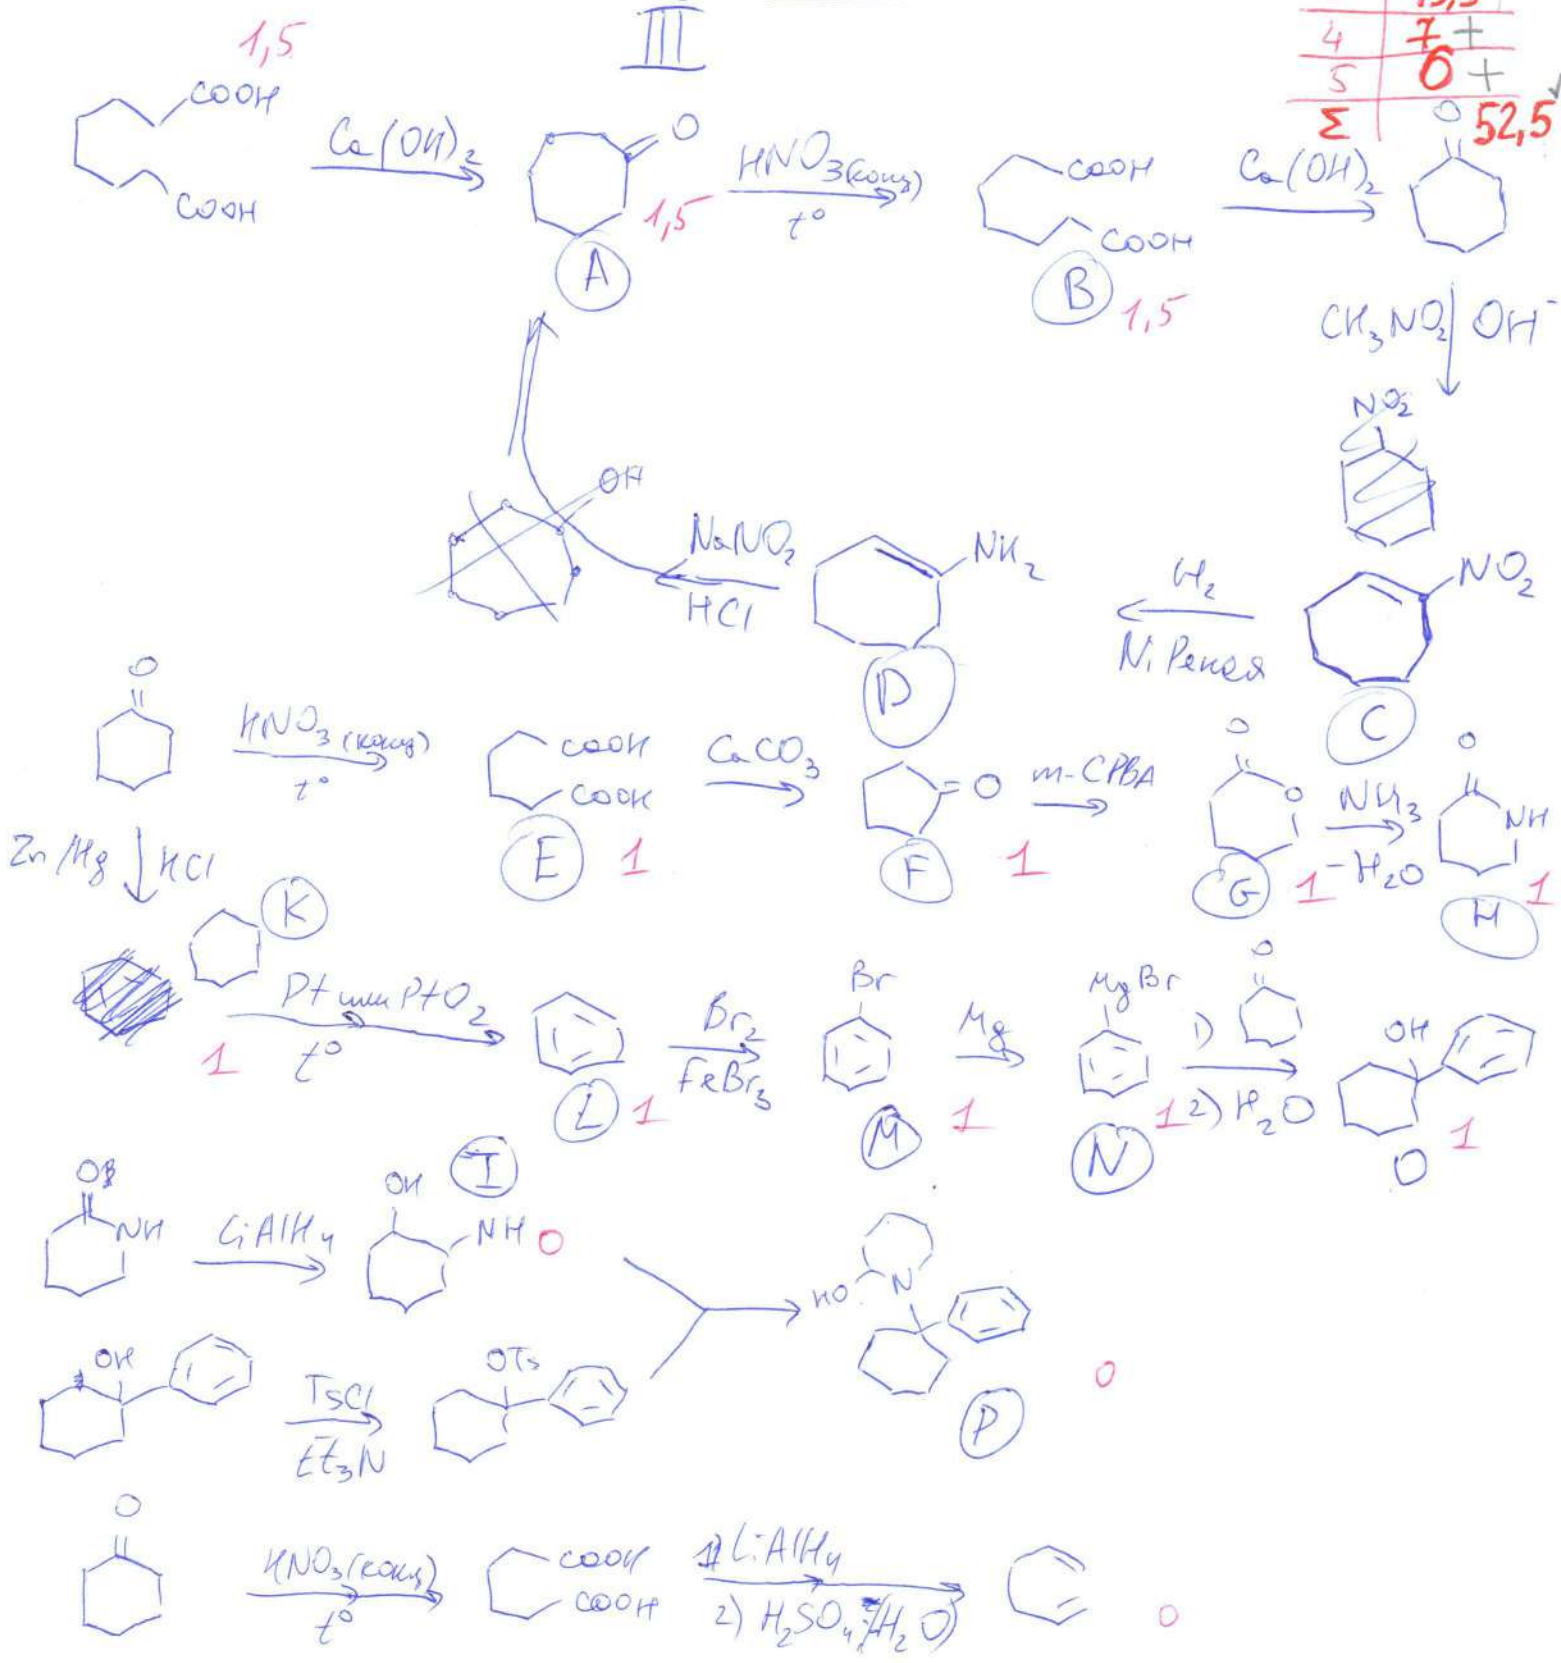 III
1,5
13,5
4 7 +
5 6 +
Σ 52,5
COOH
COOH
Ca(OH)₂
O
A
1,5
HNO₃(конц)
t°
COOH
COOH
B
1,5
Ca(OH)₂
O
CH₃NO₂ OH⁻
NO₂
NO₂
C
H₂
Ni Ренея
NH₂
D
NaNO₂
HCl
OH
O
HNO₃(конц)
t°
COOH
COOH
E
1
CaCO₃
O
F
1
m-CPBA
O
O
G
1
NH₃
-H₂O
O
NH
H
1
Zn/Hg HCl
K
1
Pt или PtO₂
t°
L
1
Br₂
FeBr₃
Br
M
1
Mg
MgBr
N
1
1) O
2) H₂O
OH
O
1
O
NH
LiAlH₄
OH
NH
I
0
OH
TsCl
Et₃N
OTs
HO
N
P
0
O
HNO₃(конц)
t°
COOH
COOH
1) LiAlH₄
2) H₂SO₄ (H₂O)
0